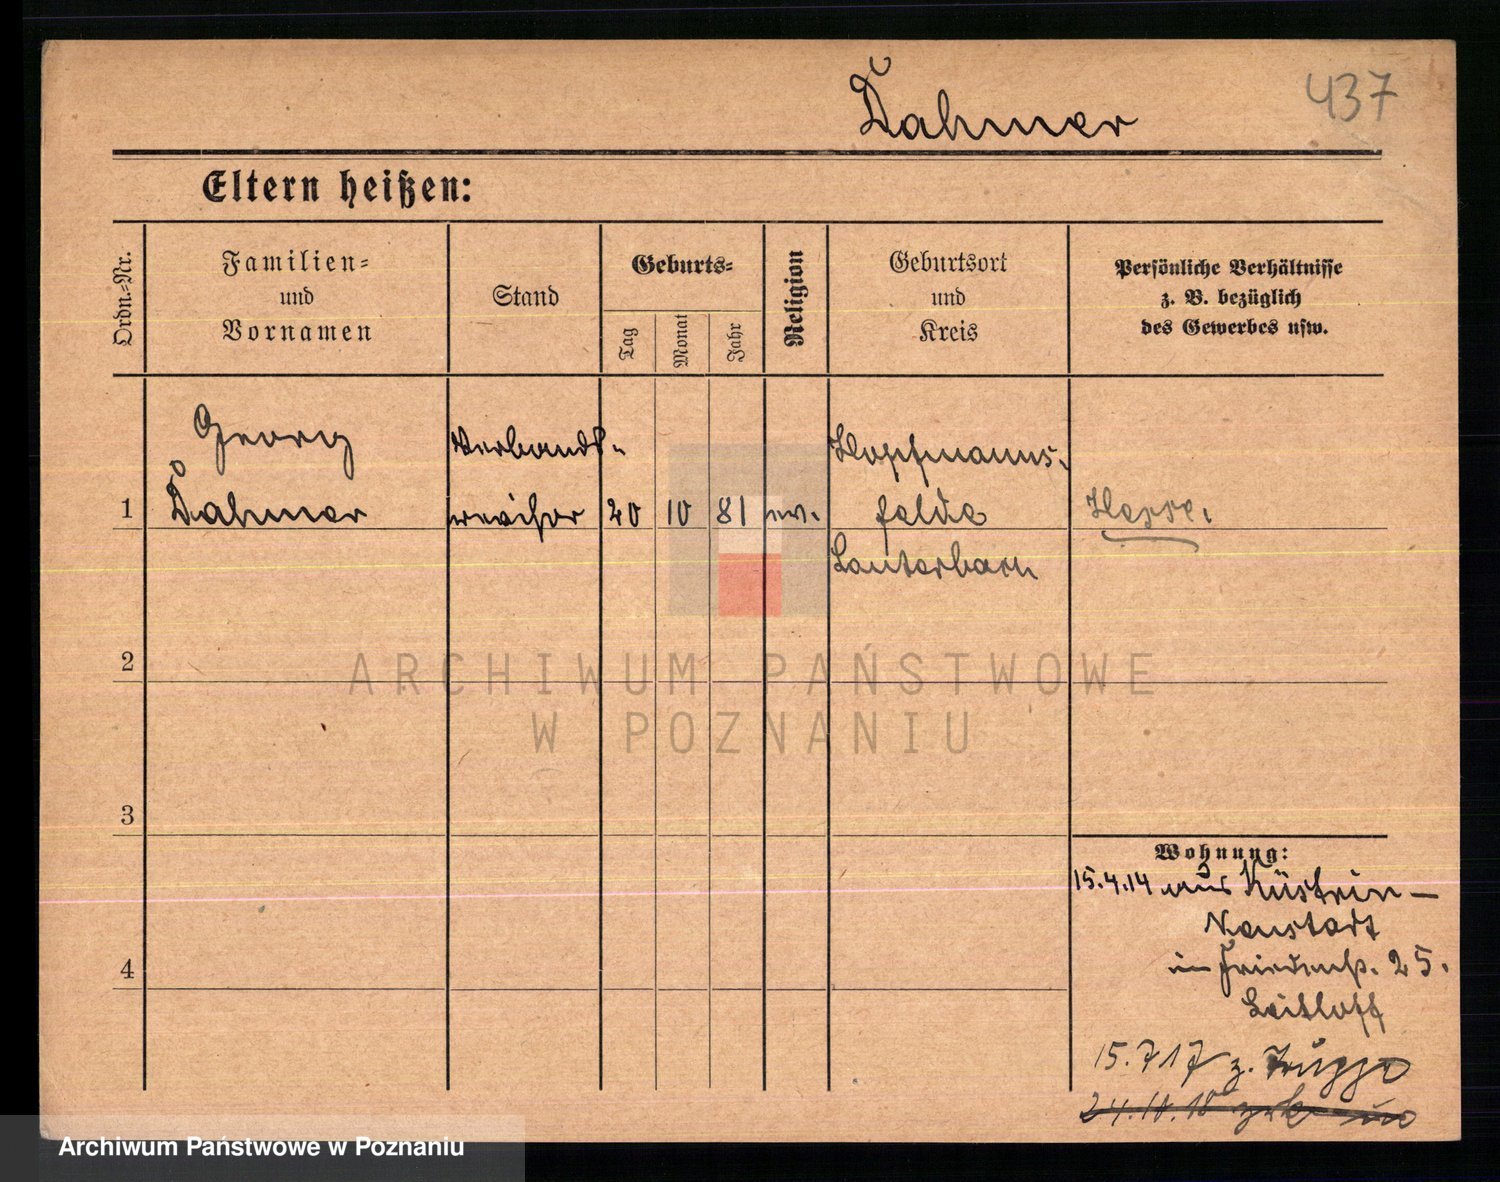 Dahmer
437
Eltern heißen:
Ordn.-Nr.
Familien-
und
Vornamen
Stand
Geburts-
Tag
Monat
Jahr
Religion
Geburtsort
und
Kreis
Persönliche Verhältnisse
z. B. bezüglich
des Gewerbes usw.
1
Georg
Dahmer
Verbands-
revisor
20
10
81
ev.
Hopfmanns-
felde
Lauterbach
Hesse.
2
3
4
Wohnung:
15.4.14 aus Küstrin-
Neustadt
in 25.
Leitloff
15.7 17 z. Truppe
24.10.18 zrk
ARCHIWUM PAŃSTWOWE
W POZNANIU
Archiwum Państwowe w Poznaniu